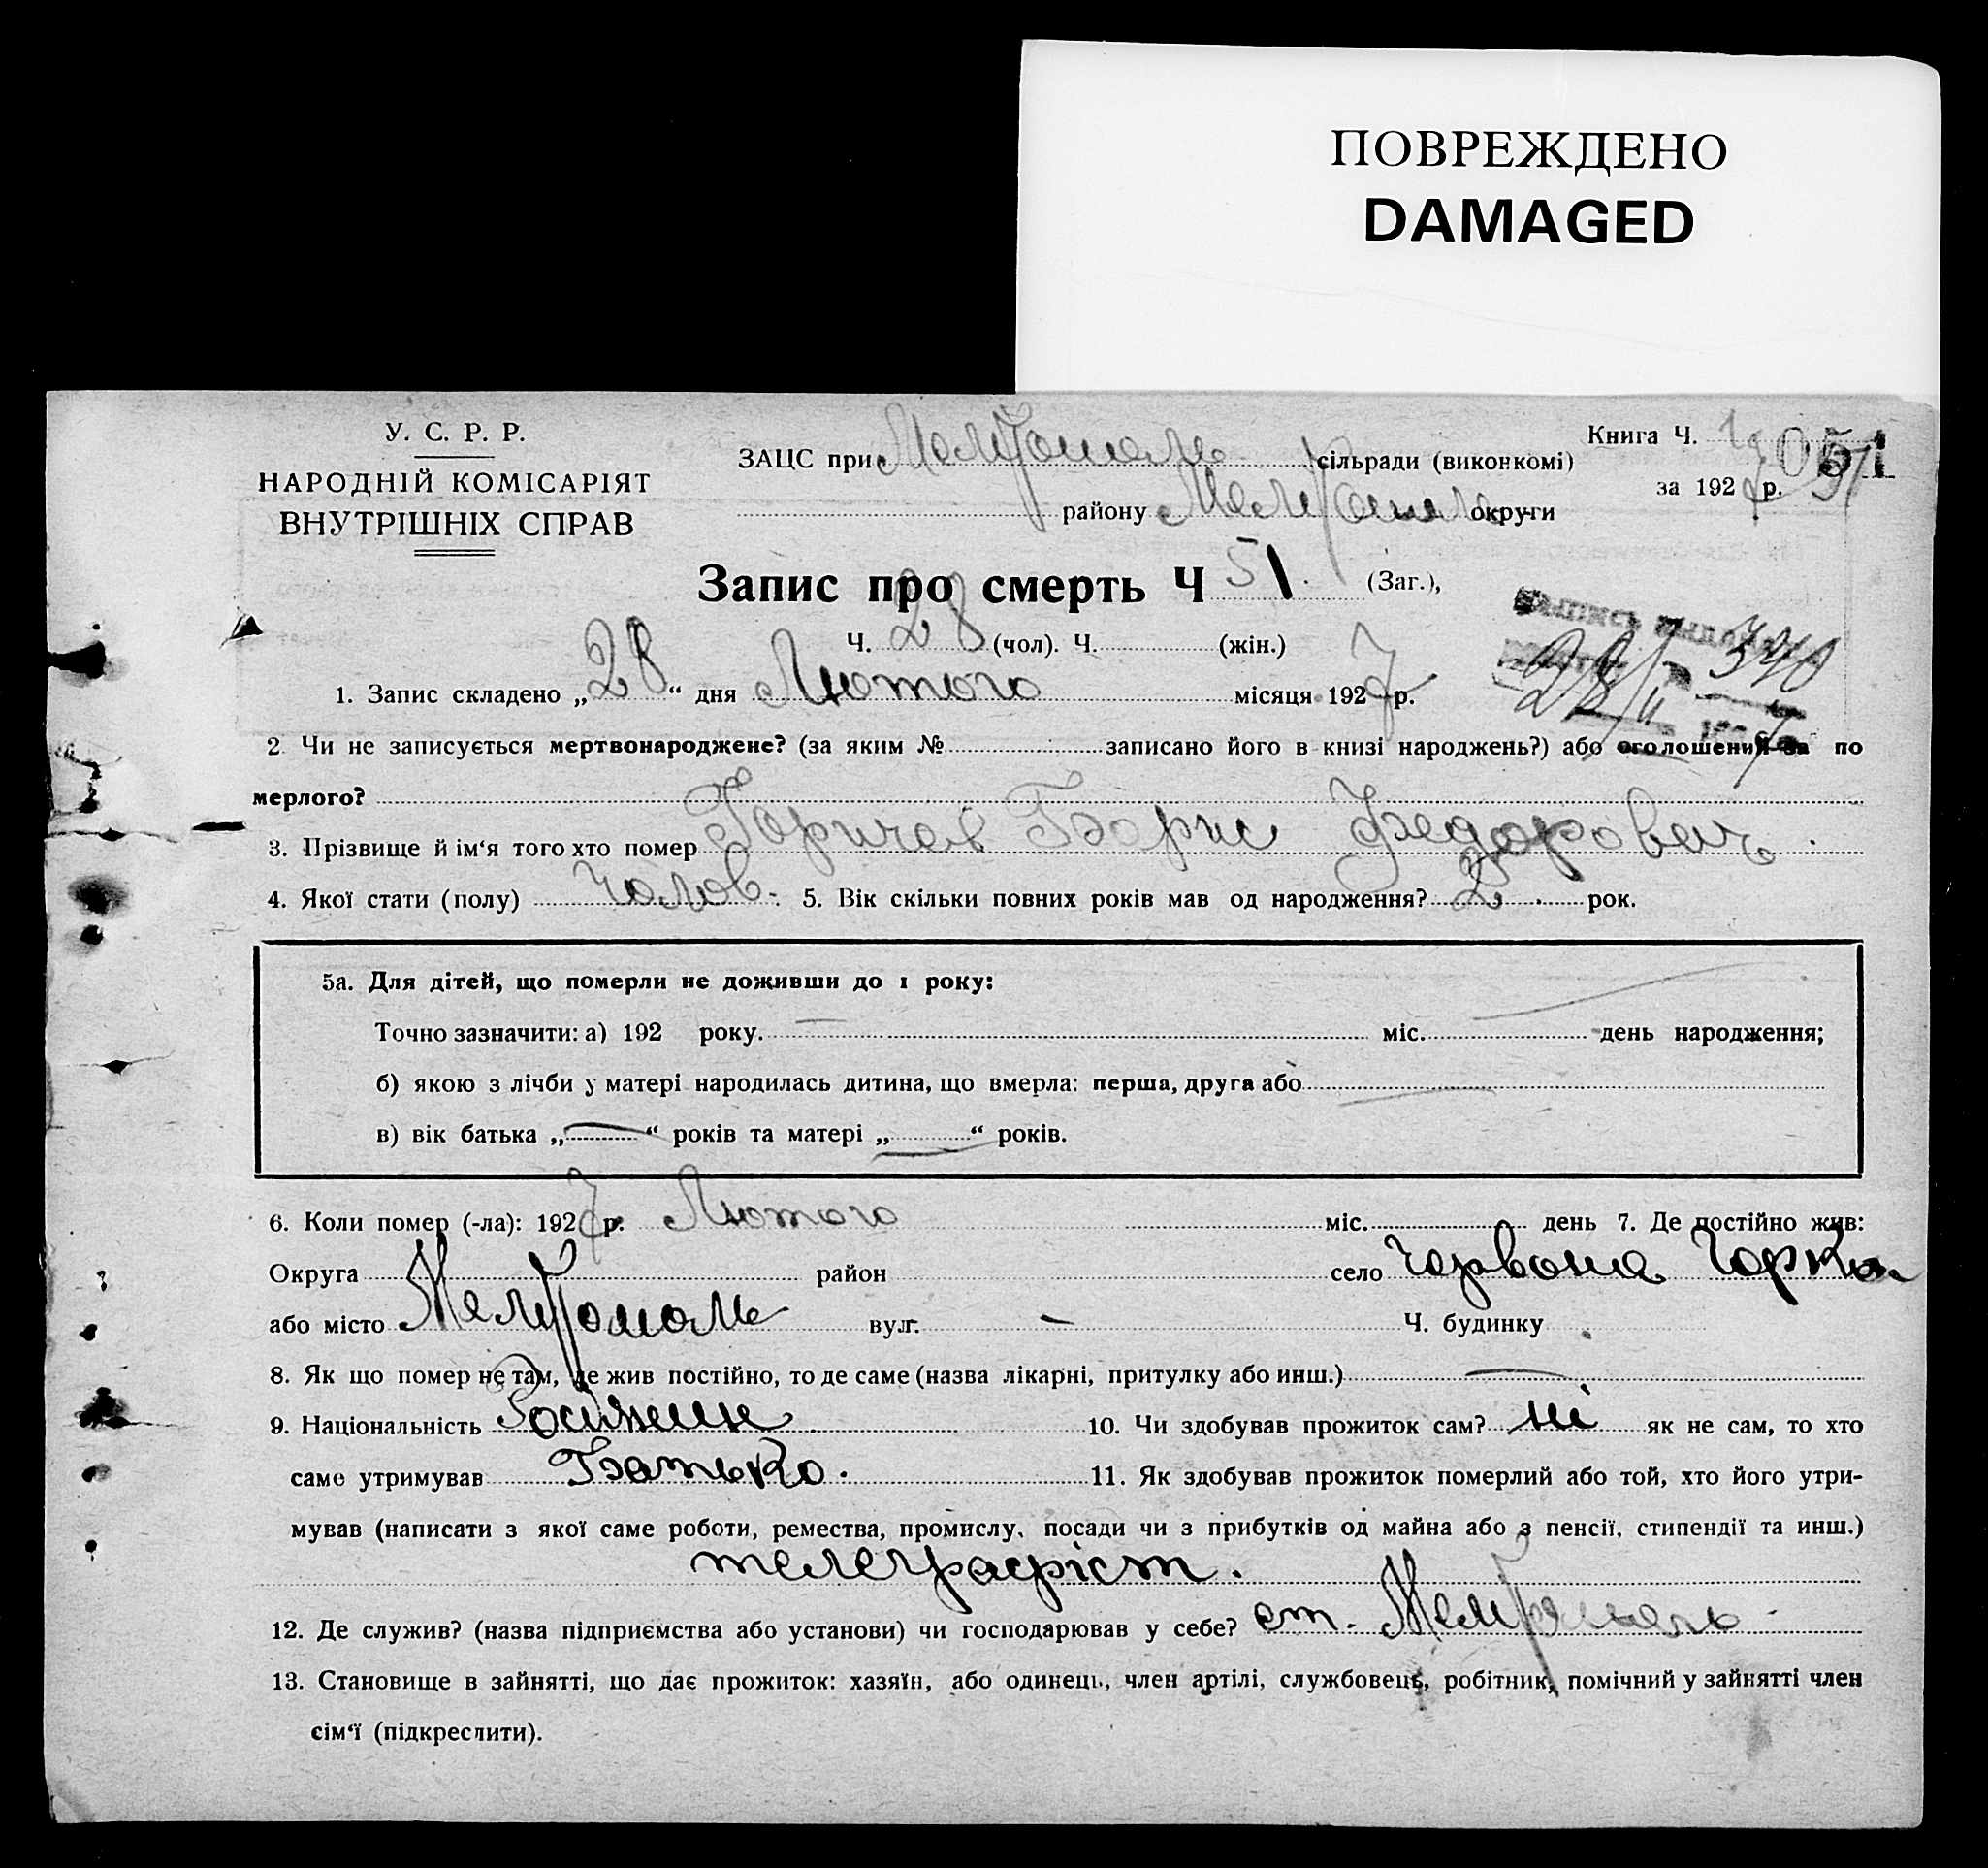 ПОВРЕЖДЕНО
DAMAGED
У. С. Р. Р.
НАРОДНІЙ КОМІСАРІЯТ
ВНУТРІШНІХ СПРАВ
ЗАЦС при Мелітополь сільради (виконкомі)
району округи
Книга Ч.
051
за 1927 р. 51
Запис про смерть Ч 51. (Заг.),
Ч. 28 (чол). Ч. (жін.)
340
28/II 7
1. Запис складено „28“ дня Лютого місяця 1927 р.
2 Чи не записується мертвонароджене? (за яким № записано його в книзі народжень?) або оголошений за по
мерлого?
3. Прізвище й ім‘я того хто помер Горичев Борис Федорович.
4. Якої стати (полу) чолов. 5. Вік скільки повних років мав од народження? 2 рок.
5а. Для дітей, що померли не доживши до 1 року:
Точно зазначити: а) 192 року. міс. день народження;
б) якою з лічби у матері народилась дитина, що вмерла: перша, друга або
в) вік батька „ — “ років та матері „ “ років.
6. Коли помер (-ла): 1927 р. Лютого міс. день 7. Де постійно жив:
Округа район село Червона Горка
або місто Мелітополь вул. — Ч. будинку
8. Як що помер не там, де жив постійно, то де саме (назва лікарні, притулку або инш.) —
9. Національність 10. Чи здобував прожиток сам? ні як не сам, то хто
саме утримував Батько. 11. Як здобував прожиток померлий або той, хто його утри-
мував (написати з якої саме роботи, ремества, промислу, посади чи з прибутків од майна або з пенсії, стипендії та инш.)
телеграфіст.
12. Де служив? (назва підприємства або установи) чи господарював у себе? ст. Мелітополь
13. Становище в зайнятті, що дає прожиток: хазяїн, або одинець, член артілі, службовець, робітник, помічний у зайнятті член
сім‘ї (підкреслити).